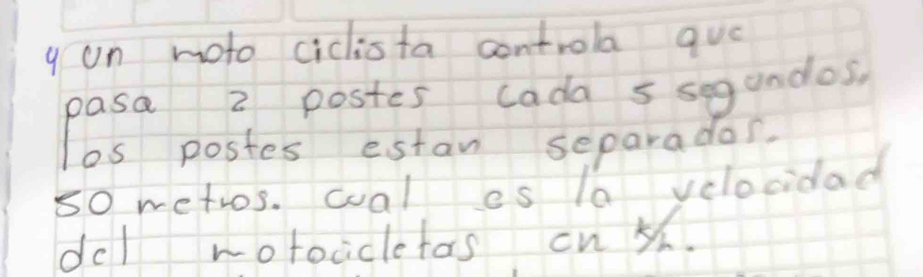 4 un moto ciclista controla que
pasa 2 postes cada 5 segundos.
los postes estan separados.
50 metros. cual es la velocidad
del motocicletas en k/h.